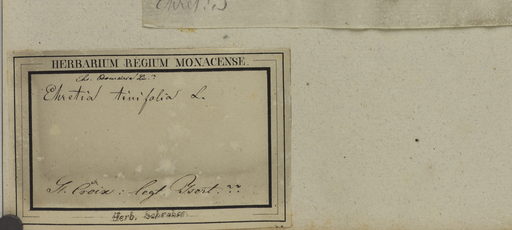 HERBARIUM REGIUM MONACENSE.
Ehretia tinifolia L.
St. Croix: legt. Isert. ??
Herb. Schreber.